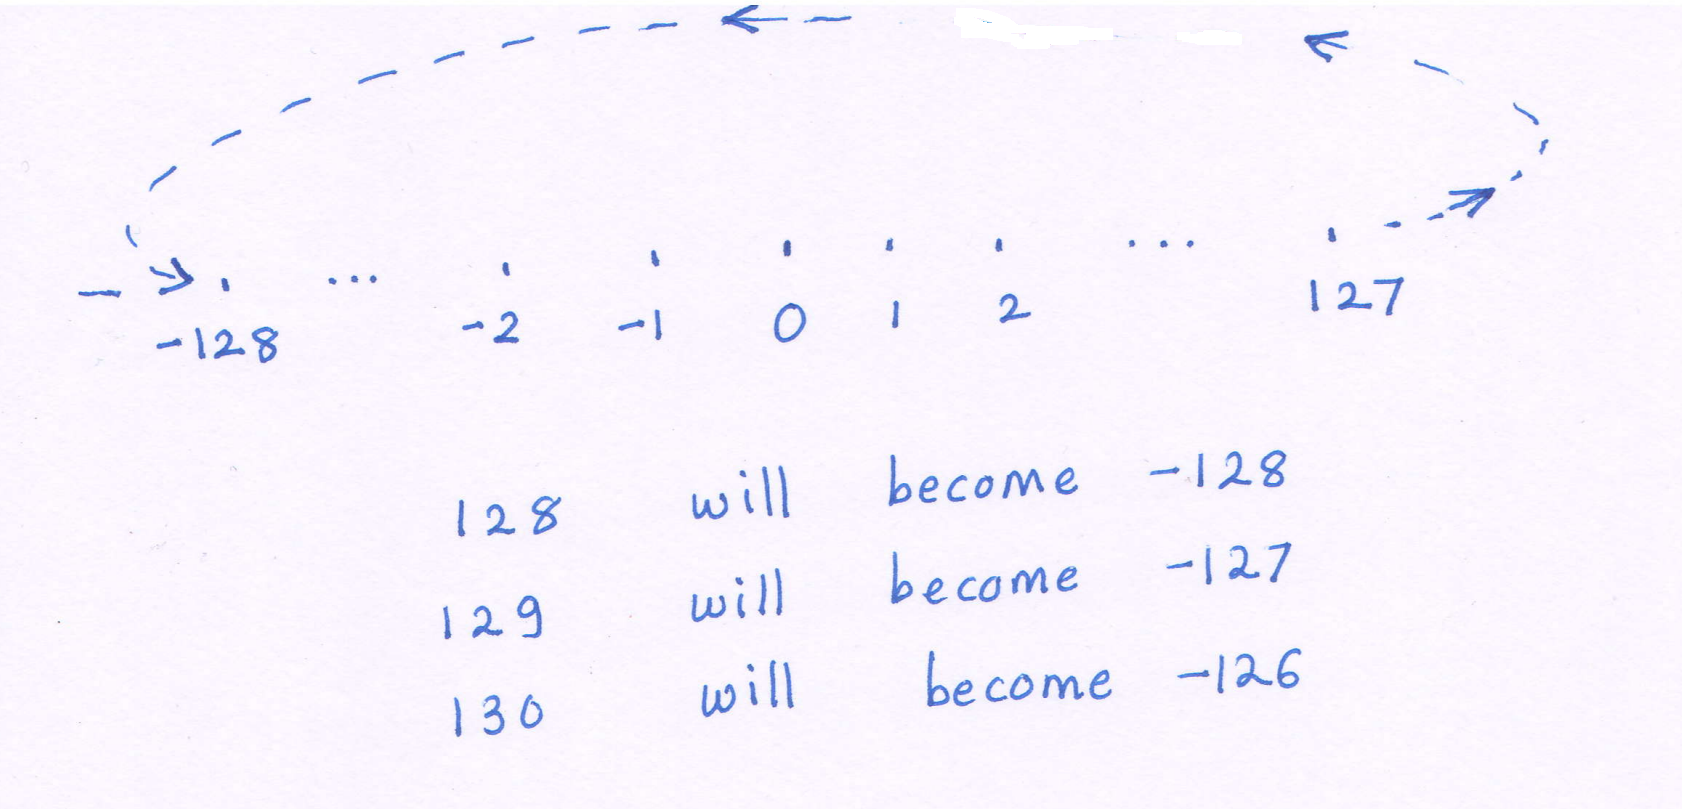 -128 ... -2 -1 0 1 2 ... 127
128 will become -128
129 will become -127
130 will become -126